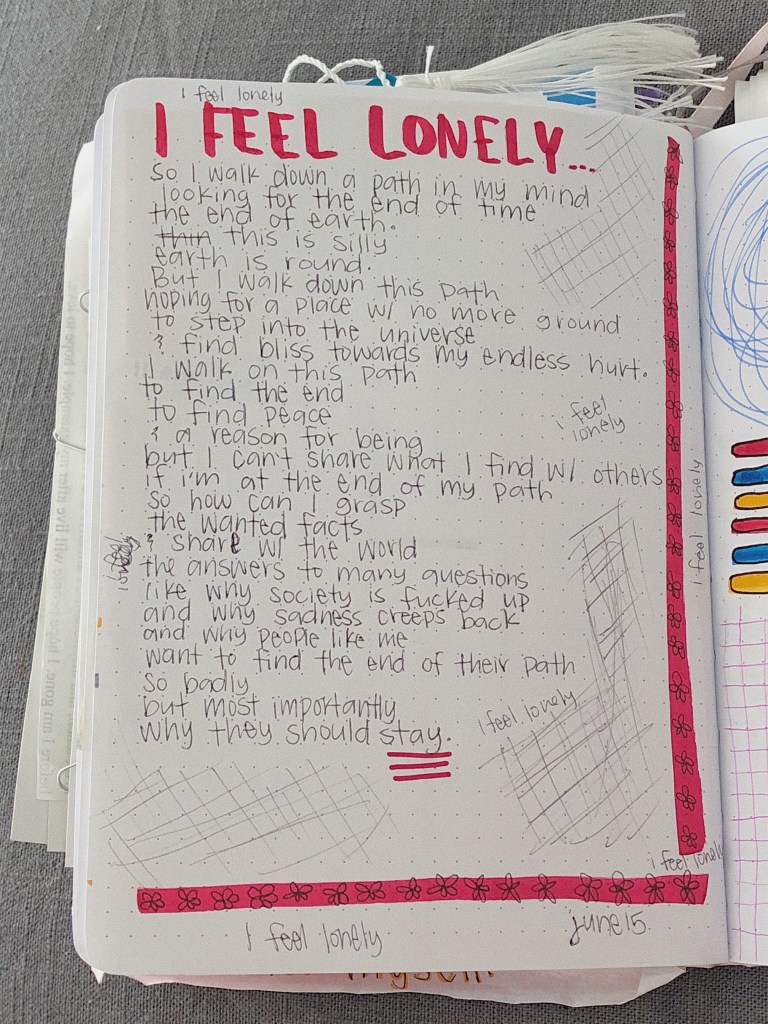 i feel lonely
I FEEL LONELY...
So I walk down a path in my mind
looking for the end of time
the end of earth.
thin this is silly
earth is round.
But I walk down this path
hoping for a place w/ no more ground
to step into the universe
& find bliss towards my endless hurt.
I walk on this path
to find the end
to find peace
& a reason for being
but I can't share what I find w/ others
if i'm at the end of my path
so how can I grasp
the wanted facts
& share w/ the world
the answers to many questions
like why society is fucked up
and why sadness creeps back
and why people like me
want to find the end of their path
so badly
but most importantly
why they should stay.
i feel
lonely
i feel lonely
i feel lonely
i feel lonely
I feel lonely
june 15.